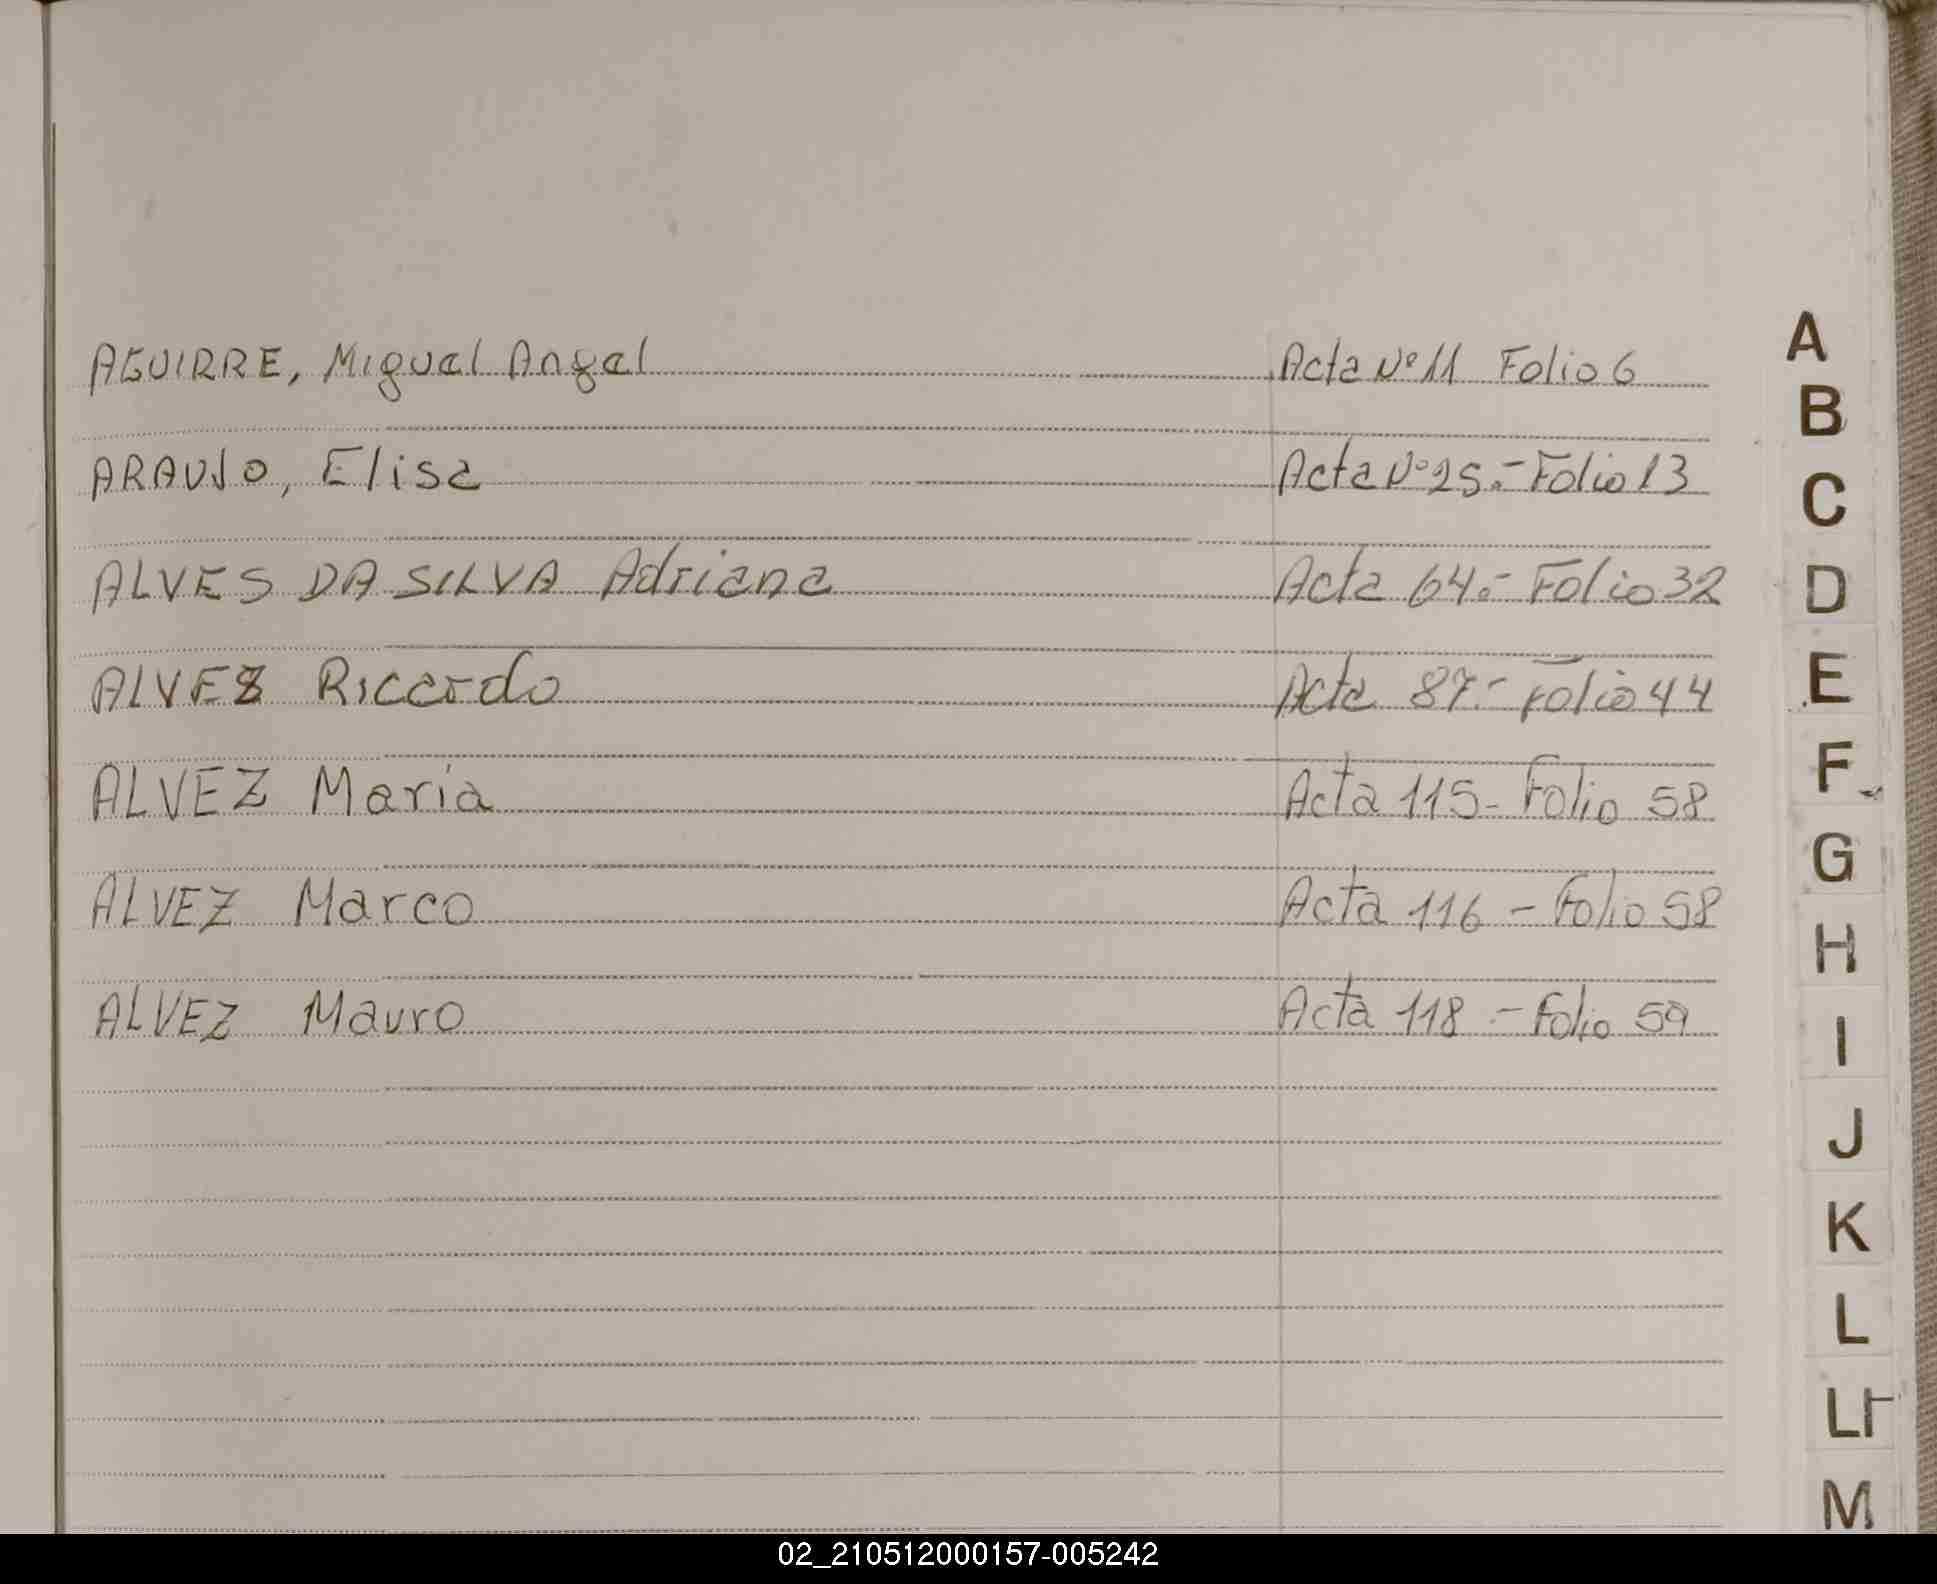 AGUIRRE, Miguel Angel Acta Nº 11 Folio 6
ARAUJO, Elisa Acta Nº 25.- Folio 13
ALVES DA SILVA Adriana Acta 64.- Folio 32
ALVEZ Riccardo Acta 87.- Folio 44
ALVEZ Maria Acta 115- Folio 58
ALVEZ Marco Acta 116 - Folio 58
ALVEZ Mauro Acta 118 .- Folio 59
A
B
C
D
E
F
G
H
I
J
K
L
LL
M
02_210512000157-005242